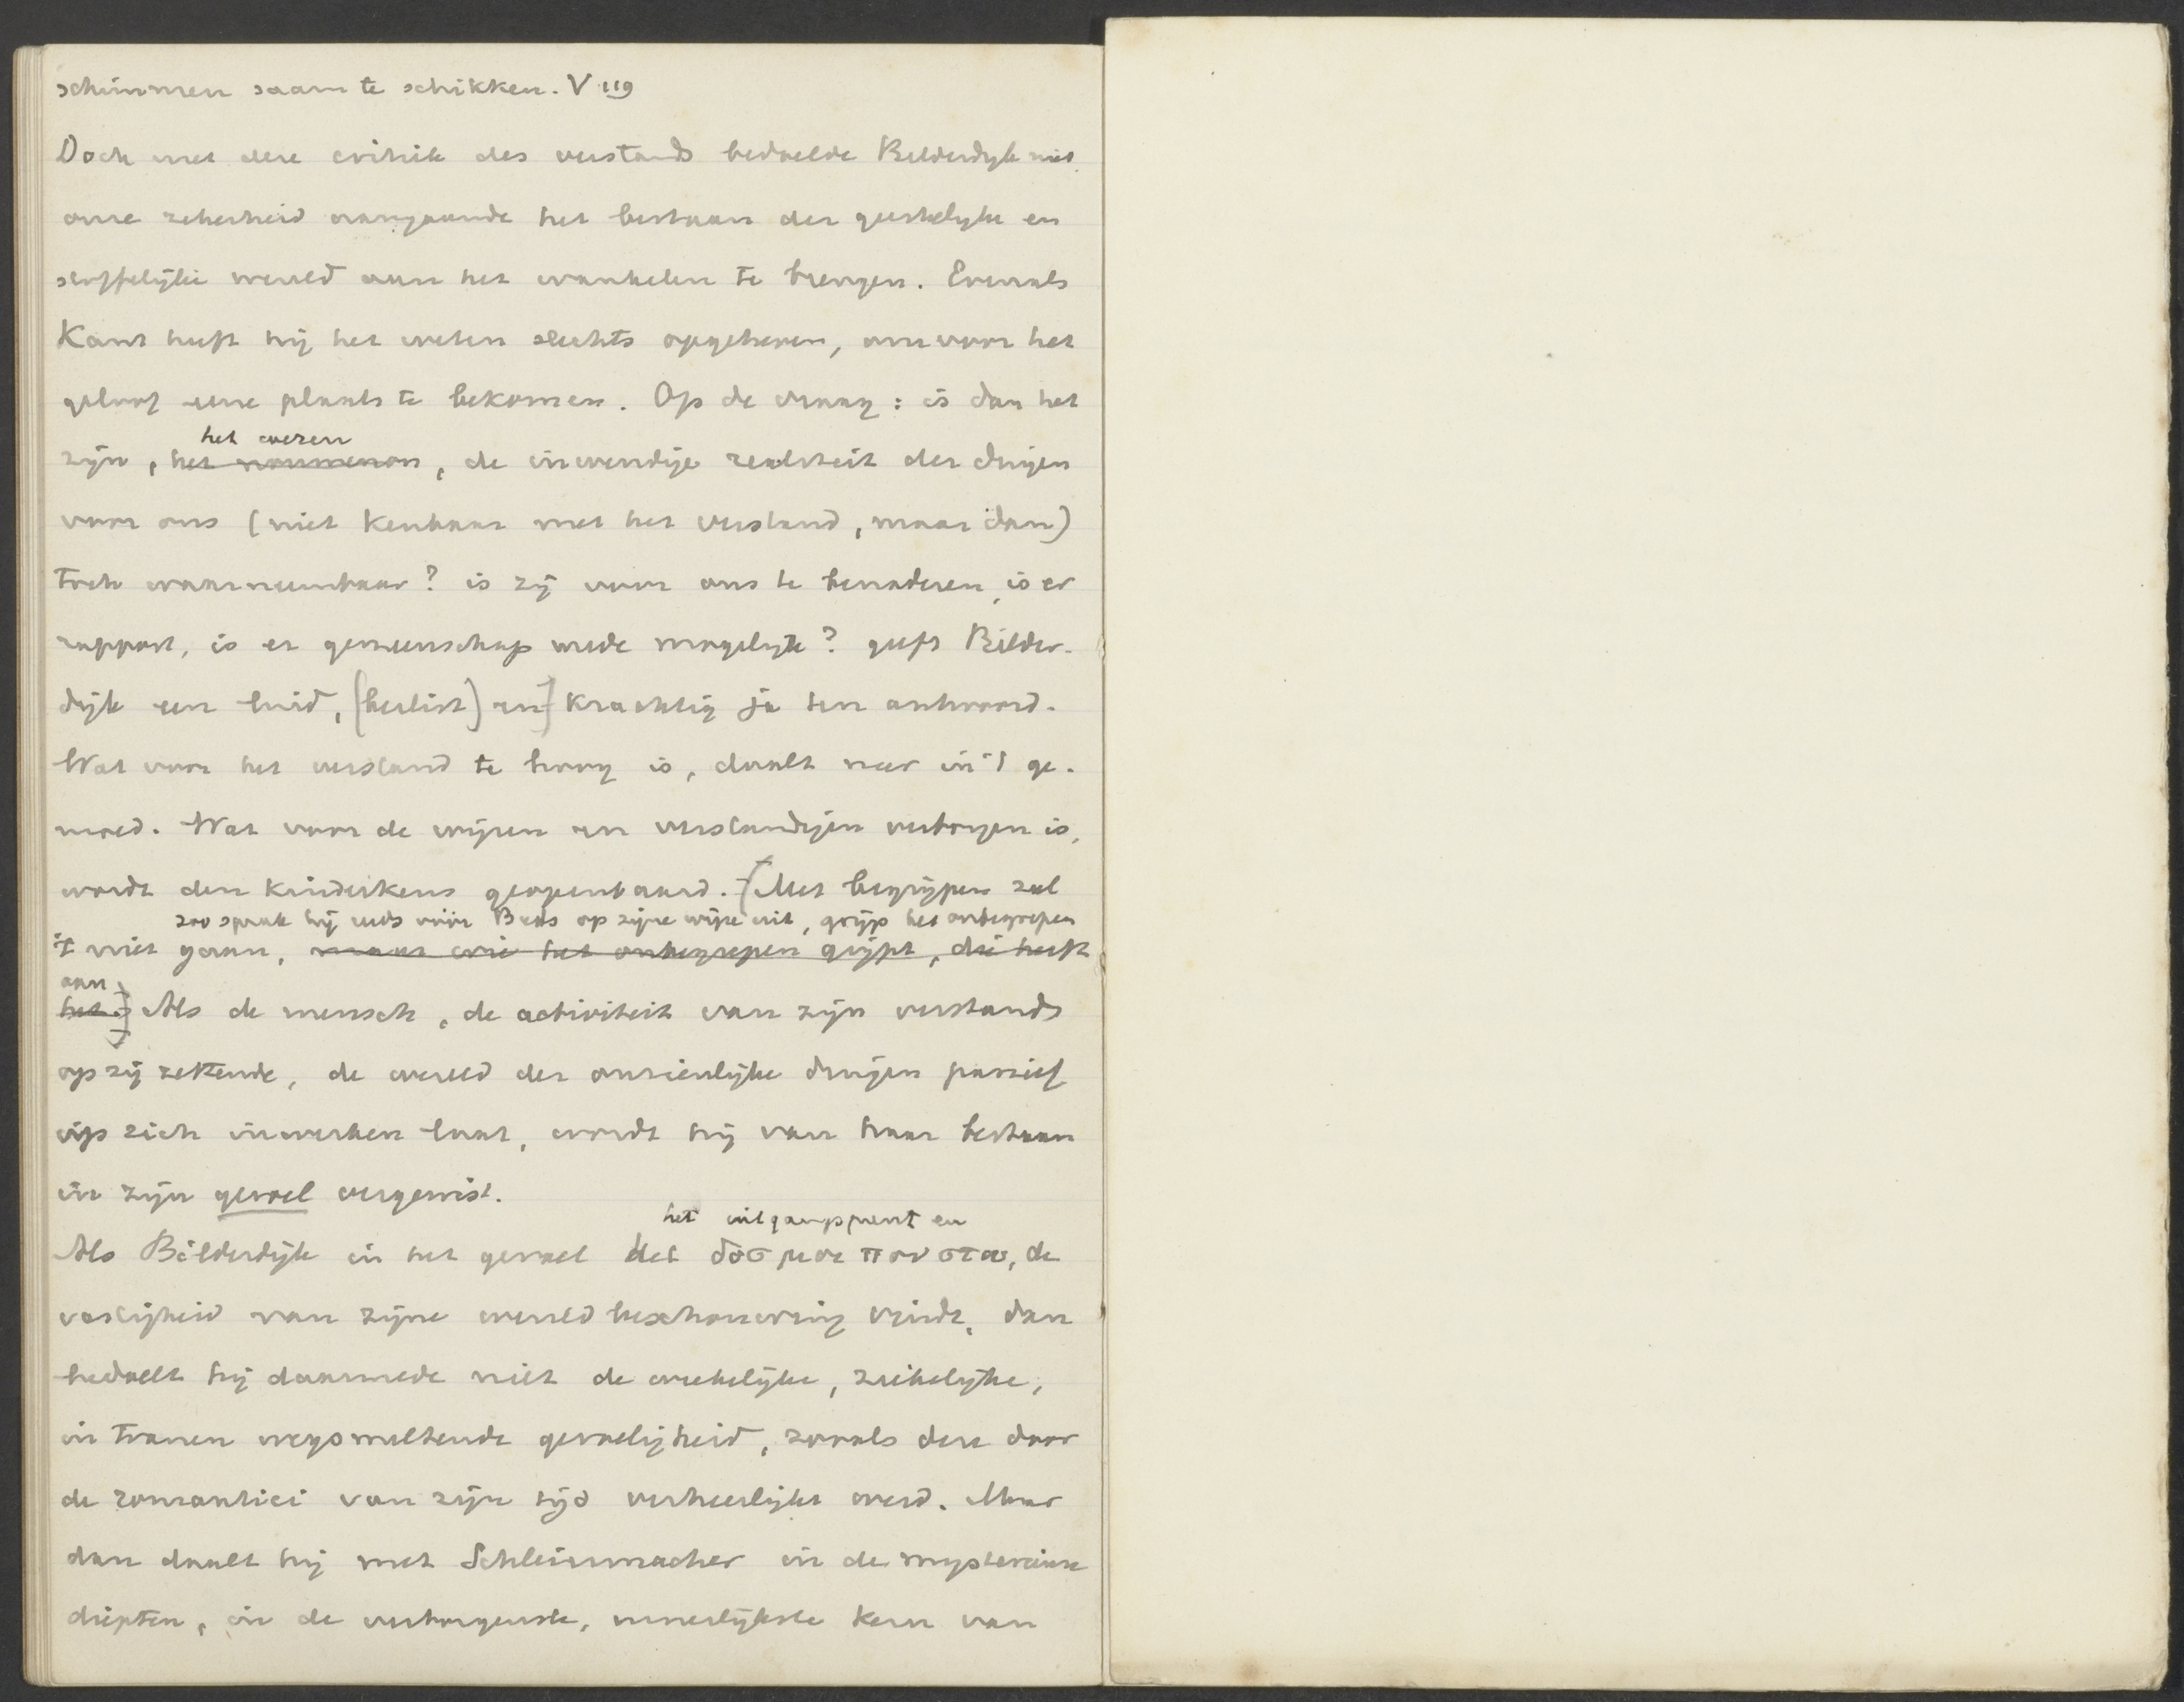 schimmen saam te schikken. V 119
Doch met deze critiek des verstands bedoelde Bilderdijk niet
onze zekerheid aangaande het bestaan der geestelijke en
stoffelijke wereld aan het wankelen te brengen. Evenals
Kant heeft hij het weten slechts opgeheven, om voor het
geloof eene plaats te bekomen. Op de vraag: is dan het
het wezen
zijn, het noumenon, de inwendige realiteit der dingen
voor ons (niet kenbaar met het verstand, maar dan)
toch waarneembaar? is zij voor ons te benaderen, is er
rapport, is er gemeenschap mede mogelijk? geeft Bilder-
dijk een luid, [beslist) en] krachtig ja ten antwoord.
Wat voor het verstand te hoog is, daalt neer in 't ge-
moed. Wat voor de wijzen en verstandigen verborgen is,
wordt den kinderkens geopenbaard. [Met begrijpen zal
zoo sprak hij reeds vóór Beets op zijne wijze uit, grijp het onbegrepen
't niet gaan, maar wie het onbegrepen grijpt, die heeft
aan
het.] Als de mensch, de activiteit van zijn verstand
op zij zettende, de wereld der onzienlijke dingen passief
op zich inwerken laat, wordt hij van haar bestaan
in zijn gevoel vergewist.
het uitgangspunt en
Als Bilderdijk in het gevoel het δοσ μοι που στω, de
vastigheid van zijne wereldbeschouwing vindt, dan
bedoelt hij daarmede niet de weekelijke, ziekelijke,
in tranen wegsmeltende gevoeligheid, zooals deze door
de romantici van zijn tijd verheerlijkt werd. Maar
dan daalt hij met Schleiermacher in de mysterieuse
diepten, in de verborgenste, innerlijkste kern van